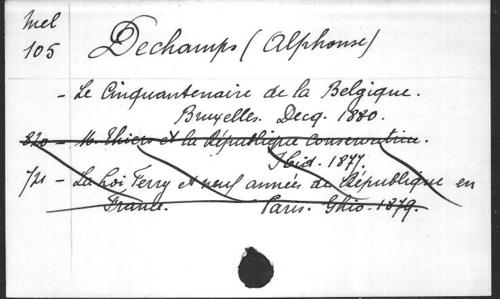 Mel
105
Dechamps (Alphonse)
- Le Cinquantenaire de la Belgique.
Bruxelles. Decq. 1880.
820 - M. Thiers et la République Conservatrice.
Ibid. 1877.
721 - La Loi Ferry et neuf années de République en
France. Paris. Ghio. 1879.